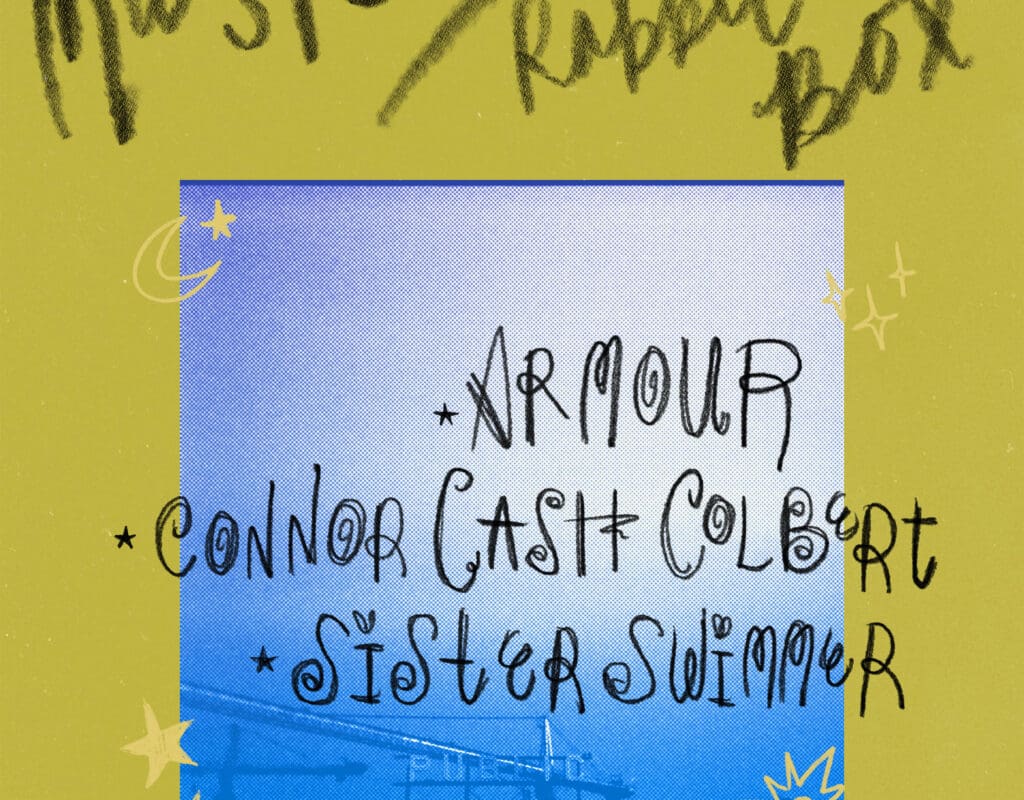 Music
Rabbit
Box
ARMOUR
CONNOR CASH COLBERT
SISTER SWIMMER
PUBLIC